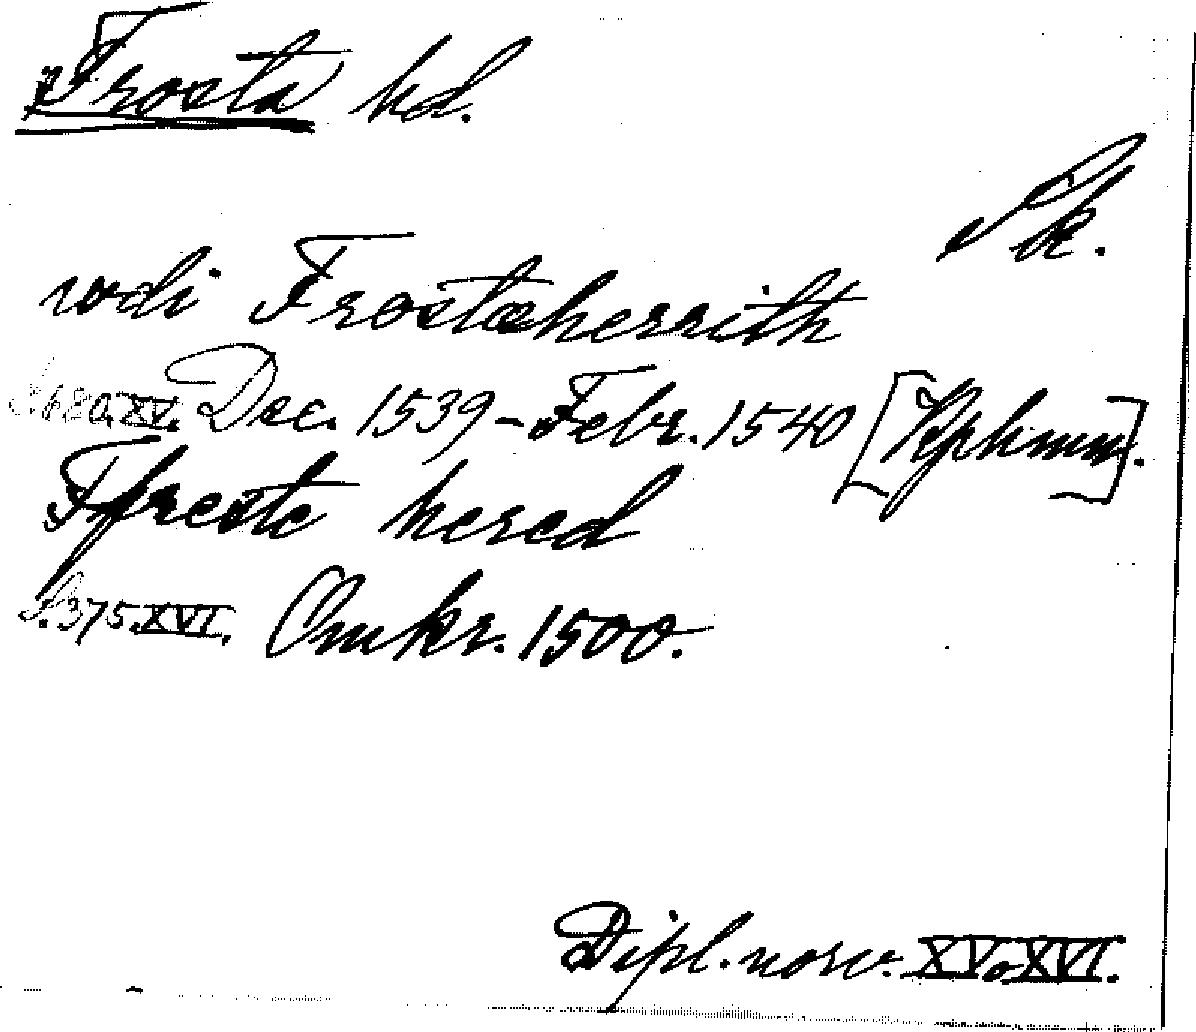 Frosta hd.
Sk.
vodi Frostæherrith
S.680.XV. Dec. 1539-Febr. 1540 [Kphmn].
Ffreste hered
S.375.XVI. Omkr. 1500.
Dipl. norv. XV o XVI.